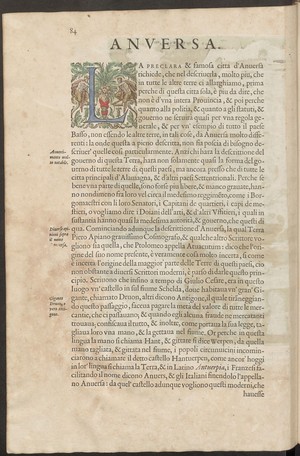 84
ANVERSA.
LA PRECLARA & famosa citta d'Anuersa
richiede, che nel descriuersa, molto più, che
in tutte le altre terre ci allarghiamo, prima
perche di questa citta sola, è piu da dire, che
non è d'vna intera Prouincia, & poi perche
quanto alla politia, & quanto a gli statuti, &
gouerno ne seruirà quasi per vna regola ge-
nerale, & per vn' esempio di tutto il paese
Basso, non essendo le altre terre, in tali cose, da Anuersa molto diffe-
renti; la onde questa a pieno descritta, non sa poscia di bisogno de-
scriuer' quelle cosi particularmente. Anzi chi harà la descrittione del
gouerno di questa Terra, harà non solamente quasi la forma del go-
uerno di tutte le terre di questi paesi, ma ancora presso che di tutte le
citta principali d'Alamagna, & d'altri paesi Settentrionali. Perche se
bene vna parte di quelle, sono forse piu libere, &
nondimeno tra loro vel circa il medesimo reggimento; come i Bor-
gomaestri con li loro Senatori, i Capitani de quartieri, i capi de me-
stieri, o vogliamo dire i Doiani dell'arti, & d'altri Vfficieri, i quali in
sustantia hanno quasi la medesima autorità, & gouerno, che questi di
qua. Cominciando adunque la descrittione d'Anuersa, la qual Terra
Piero Apiano grauissimo Cosmografo, & qualche altro Scrittore vo-
gliono sia quella, che Ptolomeo appella Atuacutum: dico che l'ori-
gine del suo nome presente, è veramente cosa molto incerta, si come
è incerta l'origine della maggior parte delle Terre di questi paesi, ciò
non ostante a diuersi Scrittori moderni, è parso di darle questo prin-
cipio. Scriuono che infino a tempo di Giulio Cesare, era in questo
luogo vn' castello in sul fiume Schelda, doue habitaua vn' gran' Gi-
gante, chiamato Druon, altri dicono Antigono, il quale tiranneggian-
do questo passaggio, faceua pagare la metà del valore a tutte le mer-
cantie, che ci passauano, & quando egli alcuna fraude ne mercatanti
trouaua, confiscaua il tutto, & inoltre, come portaua la sua legge, ta-
gliaua loro vna mano, & la gettaua nel fiume. Or perche in questa
lingua la mano si chiama Hant, & gittare si dice Werpen, da quella
mano tagliata, & gittata nel fiume, i popoli circunuicini incomin-
ciarono a chiamare il detto castello Hantuerpen, come anc' hoggi
in lor' lingua si chiama la Terra, & in Latino, Antuerpia, i Franzesi fa-
cilitando il nome dicono Anuers, & gli Italiani finendolo l'appella-
no Anuersa: da quel' castello adunque vogliono questi moderni, che
hauesse